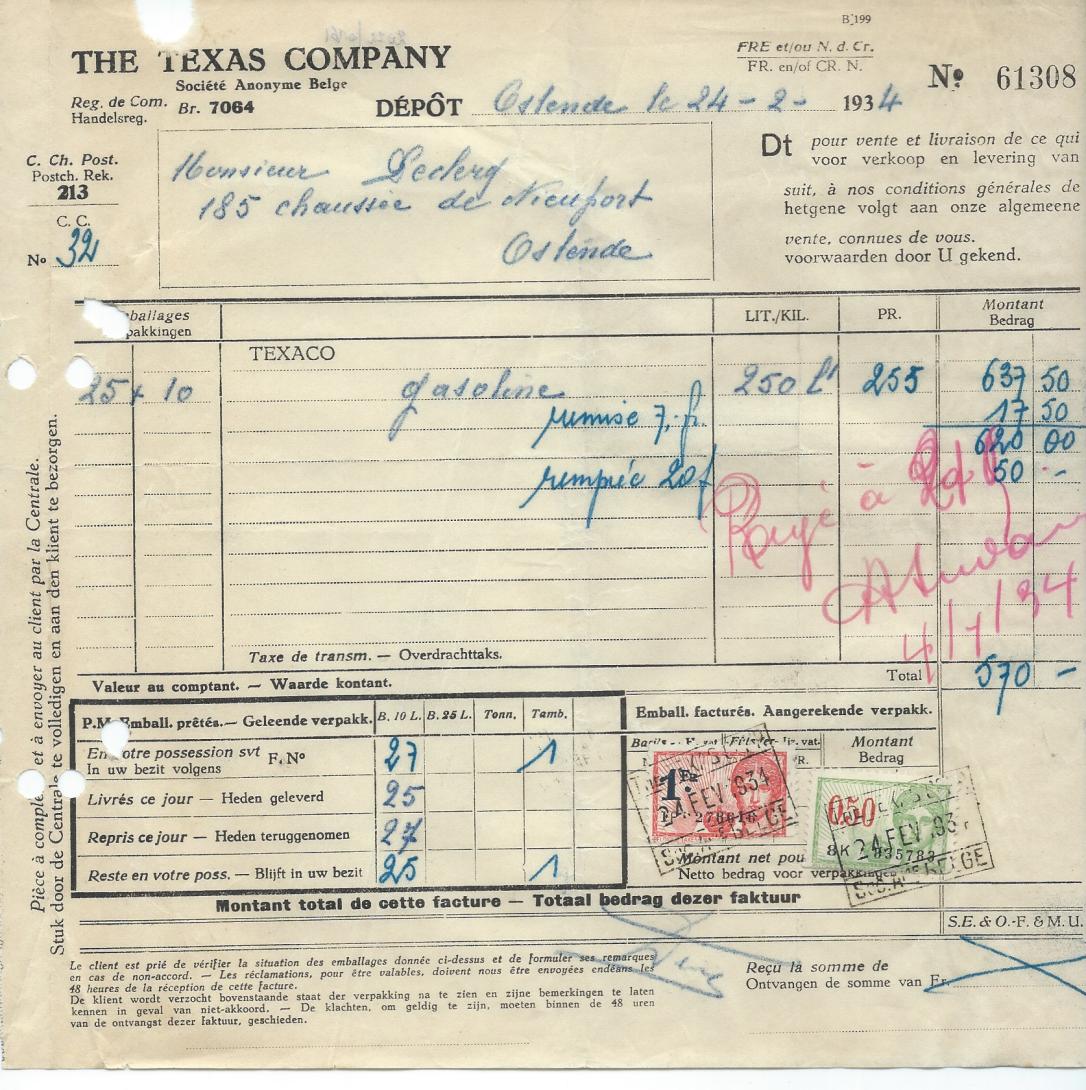 B 199
THE TEXAS COMPANY
Société Anonyme Belge
Reg. de Com.
Handelsreg.
Br. 7064
DÉPÔT Ostende le 24 - 2 - 1934
FRE et/ou N. d. Cr.
FR. en/of CR. N.
No 61308
C. Ch. Post.
Postch. Rek.
213
C. C.
No 32
Monsieur Leclerq
185 chaussée de Nieuport
Ostende
Dt pour vente et livraison de ce qui
voor verkoop en levering van
suit, à nos conditions générales de
hetgene volgt aan onze algemeene
vente, connues de vous.
voorwaarden door U gekend.
ballages
pakkingen
LIT./KIL. PR. Montant
Bedrag
TEXACO
25 + 10 gasoline 250 lt 255 637 50
remise 7. fr. 17 50
620 00
20f 50 -
à
4/1/34
Taxe de transm. — Overdrachttaks.
Total 570 -
Valeur au comptant. — Waarde kontant.
P.M. Emball. prêtés.— Geleende verpakk. B. 10 L. B. 25 L. Tonn. Tamb.
En votre possession svt F. No 27 1
In uw bezit volgens
Livrés ce jour — Heden geleverd 25
Repris ce jour — Heden teruggenomen 27
Reste en votre poss. — Blijft in uw bezit 25 1
Emball. facturés. Aangerekende verpakk.
Montant
Bedrag
1 Fr
24.FEV.1934
0.50
8K 935783
24.FEV.193
Montant net pou
Netto bedrag voor verpakkingen
Montant total de cette facture — Totaal bedrag dezer faktuur
S.E. & O.-F. & M.U.
Le client est prié de vérifier la situation des emballages donnée ci-dessus et de formuler ses remarques
en cas de non-accord. — Les réclamations, pour être valables, doivent nous être envoyées endéans les
48 heures de la réception de cette facture.
De klient wordt verzocht bovenstaande staat der verpakking na te zien en zijne bemerkingen te laten
kennen in geval van niet-akkoord. — De klachten, om geldig te zijn, moeten binnen de 48 uren
van de ontvangst dezer faktuur, geschieden.
Reçu la somme de
Ontvangen de somme van Fr.
Pièce à complé et à envoyer au client par la Centrale.
Stuk door de Centrale te volledigen en aan den klient te bezorgen.